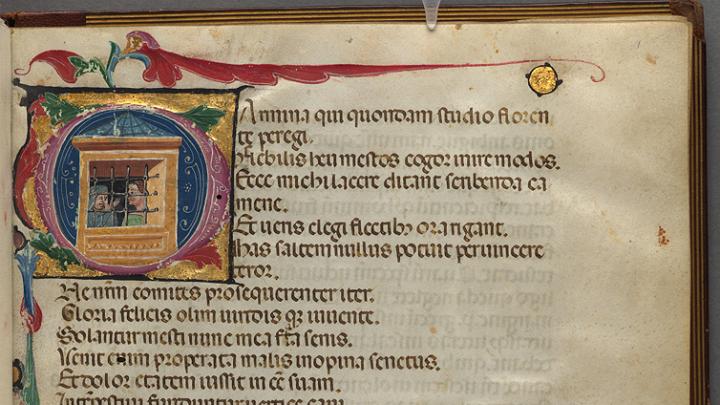 CArmina qui quondam studio floren
te peregi.
Flebilis heu mestos cogor inire modos.
Ecce michi lacere dictant scribenda ca
mene.
Et ueris elegi fletibꝫ ora rigant.
Has saltem nullus potuit peruincere
teror.
Ne nrm̄ comites prosequerenter iter.
Gloria felicis olim uiridis qꝫ iuuente.
Solantur mesti nunc mea fta senis.
Venit enim properata malis inopina senetus.
Et dolor etatem iussit in eē suam.